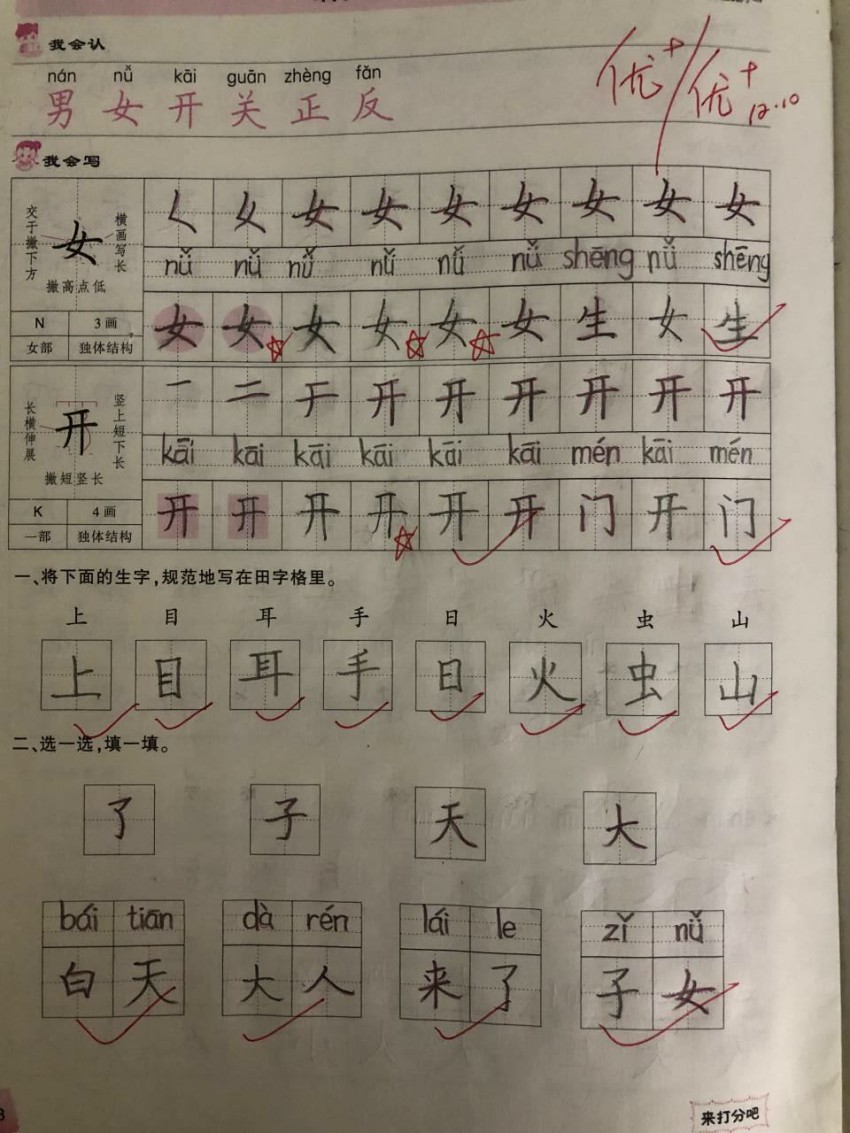 我会认
nán nǚ kāi guān zhèng fǎn
男 女 开 关 正 反
优+ 优+ 12.10
我会写
交于撇下方 女 横画写长
撇高点低
𡿨 女 女 女 女 女 女 女
nǚ nǚ nǚ nǚ nǚ nǚ shēng nǚ shēng
N 3画
女部 独体结构
女 女 女 女 女 女 生 女 生
长横伸展 开 竖上短下长
撇短竖长
一 二 于 开 开 开 开 开 开
kāi kāi kāi kāi kāi kāi mén kāi mén
K 4画
一部 独体结构
开 开 开 开 开 开 门 开 门
一、将下面的生字,规范地写在田字格里。
上 目 耳 手 日 火 虫 山
上 目 耳 手 日 火 虫 山
二、选一选,填一填。
了 子 天 大
bái tiān dà rén lái le zǐ nǚ
白 天 大 人 来 了 子 女
来打分吧